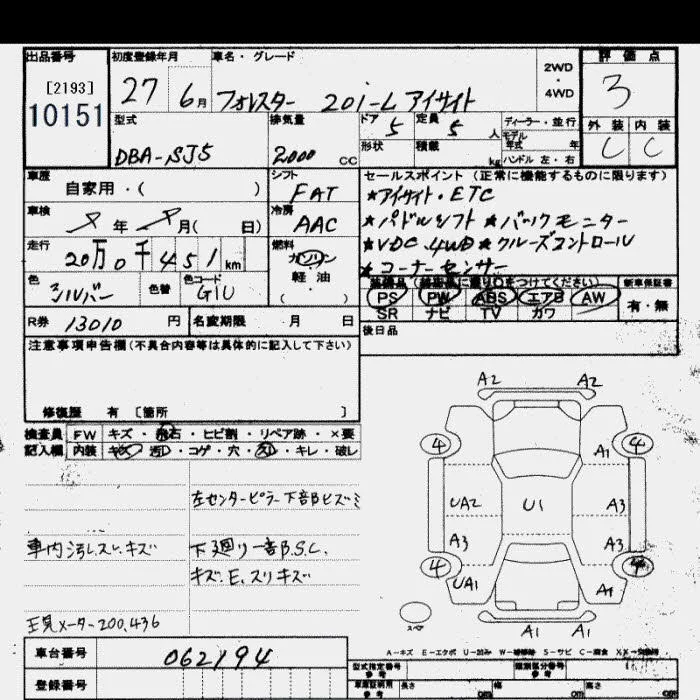 出品番号 初度登録年月 車名・グレード 評価点
[2193]
10151
27 6月 フォレスター 20i-L アイサイト
2WD
・
4WD
3
型式 排気量 ドア 定員 ディーラー・並行 外装 内装
DBA-SJ5 2,000 cc 5 5人
モデル年式 年
形状 積載 kg ハンドル 左・右
C C
車歴 シフト セールスポイント (正常に機能するものに限ります)
自家用・( ) FAT
★アイサイト・ETC
車検 年 月( 日) 冷房 AAC
★パドルシフト ★バックモニター
走行 20万0千451km 燃料 ガソリン
★VDC.4WD ★クルーズコントロール
軽・油
( )
★コーナーセンサー
色 シルバー 色替 色コード G1U
PS PW ABS エアB AW
SR ナビ TV カワ
新車保証書
有・無
R券 13010円 名変期限 月 日
後日品
注意事項申告欄(不具合内容等は具体的に記入して下さい)
修復歴 有 [箇所 ]
検査員 FW キズ・飛石・ヒビ割・リペア跡・×要
記入欄 内装 キズ・汚れ・コゲ・穴・スレ・キレ・破レ
左センターピラー下部Bヒズミ
車内汚レスレキズ 下廻り一部B.S.C.
キズ.E.スリキズ
メーター200,436
車台番号 062194
登録番号
A2 A2
4 4
A1
UA2 U1 A3
A3 A3
4 4
UA1 A1
スペア
A1 A1
A-キズ E-エクボ U-凹み W-補修跡 S-サビ C-腐食 XX-交換跡
型式指定番号 参考 類別区分番号 参考
長さ cm 幅 cm 高さ cm